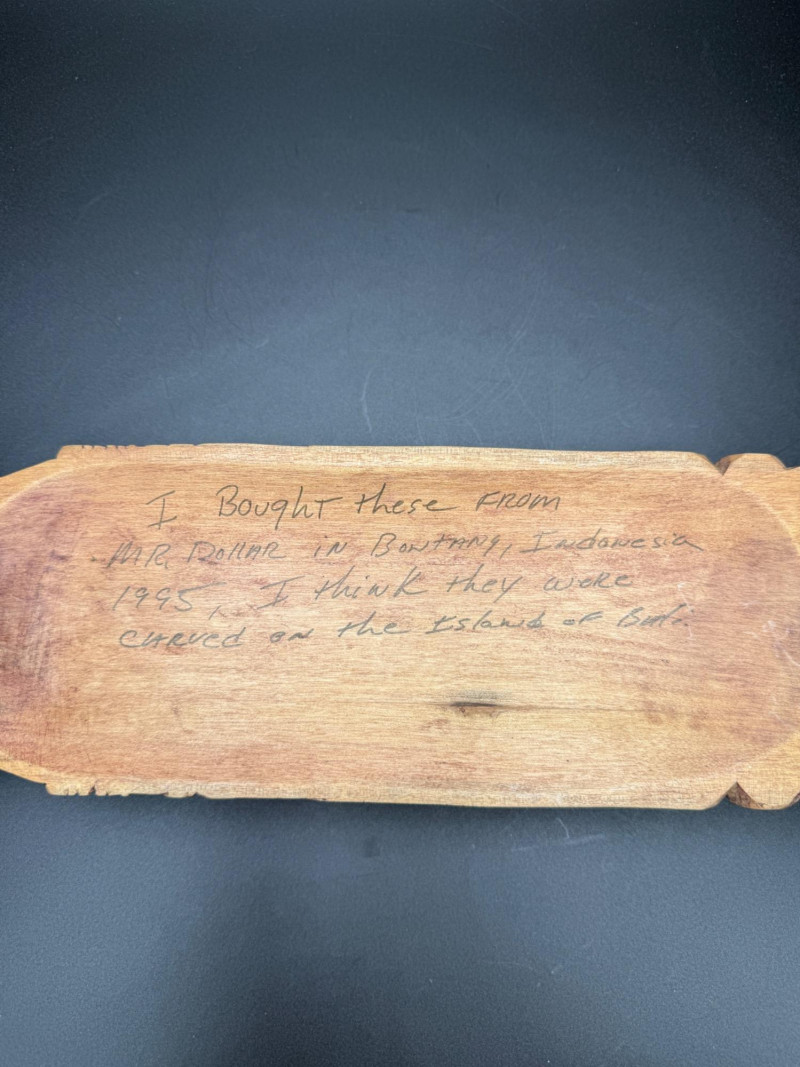 I Bought these FROM
MR. DOllAR in BONTANG, Indonesia
1995, I think they were
CARVED on the Island of Bali.